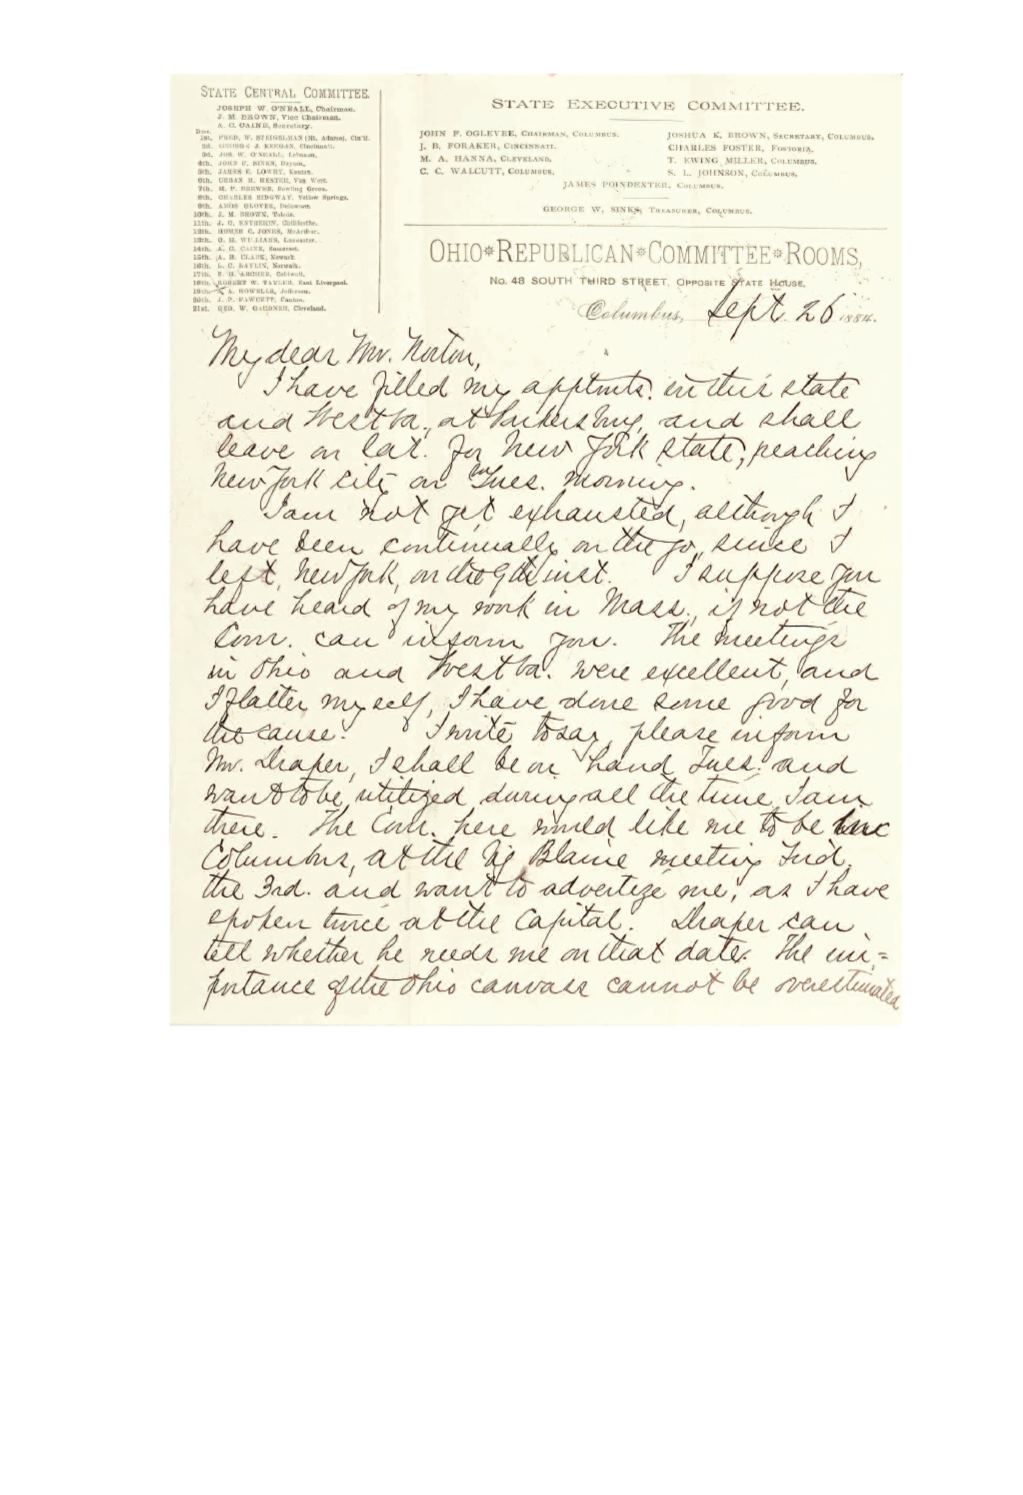 STATE CENTRAL COMMITTEE.
JOSEPH W. O'NEALL, Chairman.
J. M. BROWN, Vice Chairman.
A. C. CAINE, Secretary.
Dist.
1st. FRED. W. STEIGELMAN (Mt. Adams), Cin'ti.
2d. GEORGE J. KEEGAN, Cincinnati.
3d. JOS. W. O'NEALL, Lebanon.
4th. JOHN C. BINKS, Dayton.
5th. JAMES E. LOWRY, Kenton.
6th. URBAN H. HESTER, Van Wert.
7th. M. P. BREWER, Bowling Green.
8th. CHARLES RIDGWAY, Yellow Springs.
9th. AMOS GLOVER, Delaware.
10th. J. M. BROWN, Toledo.
11th. J. C. Chillicothe.
12th. HOMER C. JONES, McArthur.
13th. O. H. WILLIAMS, Lancaster.
14th. A. C. CAINE, Somerset.
15th. A. B. CLARK, Newark.
16th. L. C. LAYLIN, Norwalk.
17th. B. B. ARCHER, Caldwell.
18th. ROBERT W. TAYLER, East Liverpool.
19th. A. HOWELLS, Jefferson.
20th. J. P. FAWCETT, Canton.
21st. GEO. W. GARDNER, Cleveland.
STATE EXECUTIVE COMMITTEE.
JOHN F. OGLEVEE, CHAIRMAN, COLUMBUS. JOSHUA K. BROWN, SECRETARY, COLUMBUS.
J. B. FORAKER, CINCINNATI. CHARLES FOSTER, FOSTORIA.
M. A. HANNA, CLEVELAND. T. EWING MILLER, COLUMBUS.
C. C. WALCUTT, COLUMBUS. S. L. JOHNSON, COLUMBUS.
JAMES POINDEXTER, COLUMBUS.
GEORGE W. SINKS, TREASURER, COLUMBUS.
OHIO*REPUBLICAN*COMMITTEE*ROOMS,
No. 48 SOUTH THIRD STREET, OPPOSITE STATE HOUSE.
Columbus, Sept. 26 1884.
My dear Mr. Norton,
I have filled my apptmts. in this state
and West Va., at Parkersburg, and shall
leave on Sat. for New York state, reaching
New York city on Tues. morning.
I am not yet exhausted, although I
have been continually on the go, since I
left, New York, on the 9th inst. I suppose you
have heard of my work in Mass., if not the
Com. can inform you. The meetings
in Ohio and West Va. were excellent, and
I flatter myself, I have done some good for
the cause. I write to say, please inform
Mr. Draper, I shall be on hand Tues. and
want to be utilized during all the time I am
there. The Com. here would like me to be in
Columbus, at the big Blaine meeting Frid.
the 3rd. and want to advertize me, as I have
spoken twice at the Capital. Draper can
tell whether he needs me on that date. The im=
portance of the Ohio canvass cannot be overestimated